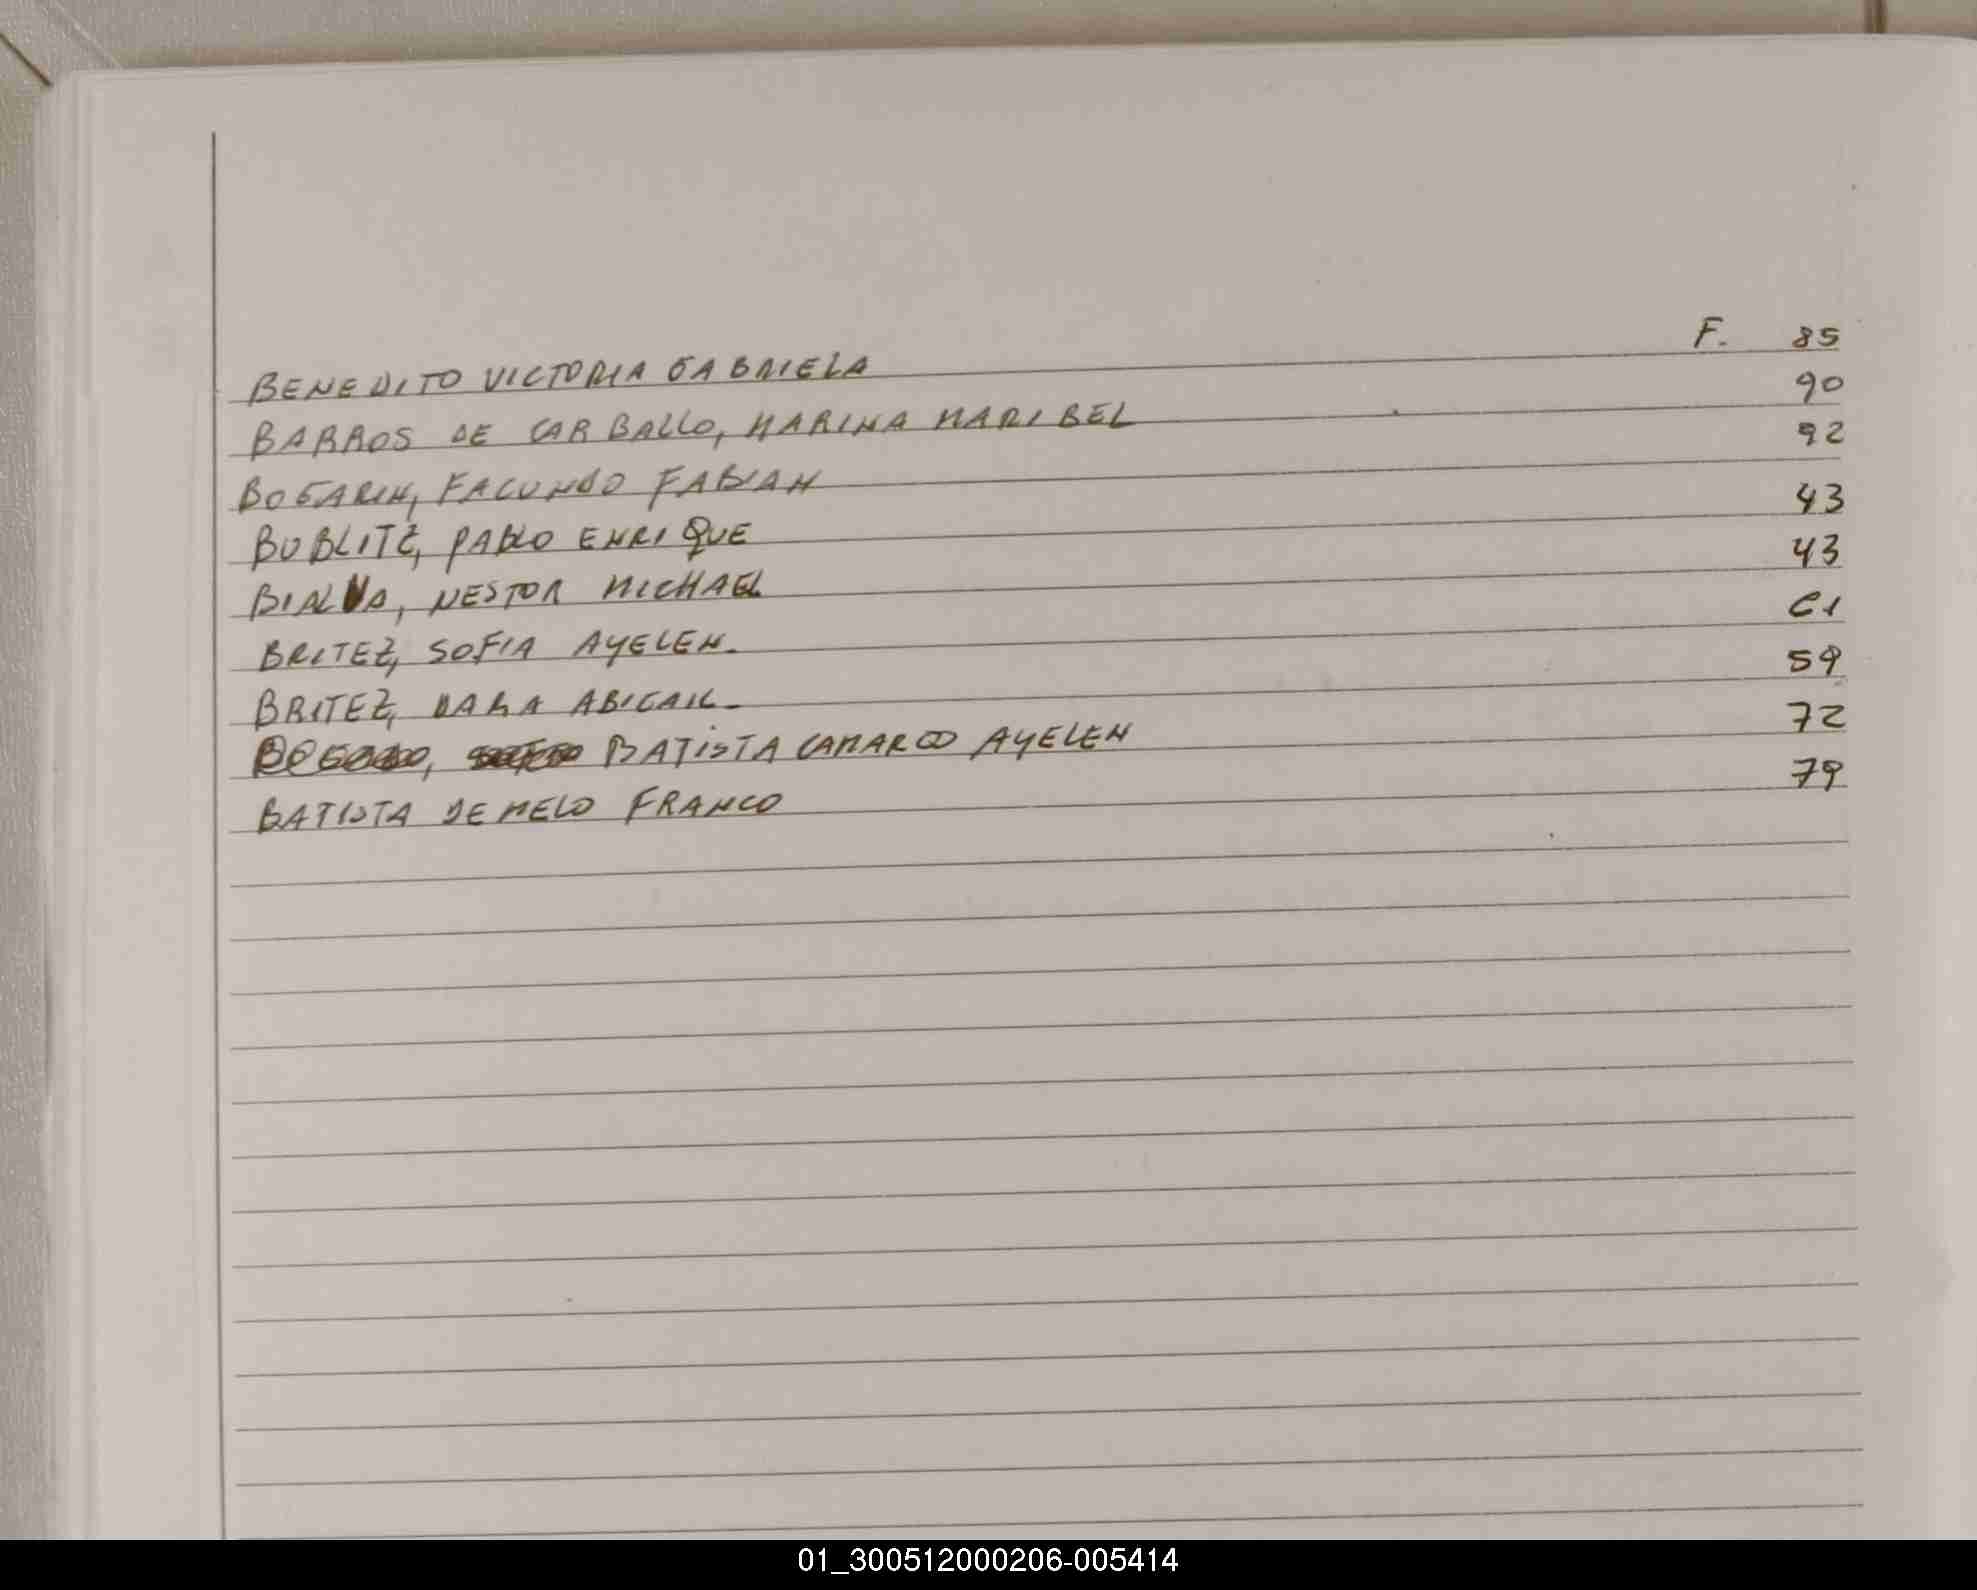 BENEDITO VICTORIA GABRIELA F. 85
BARROS DE CARBALLO, MARINA MARIBEL 90
BOGARIN, FACUNDO FABIAN 92
BUBLITZ, PABLO ENRIQUE 43
NESTOR MICHAEL 43
BRITEZ, SOFIA AYELEN. 61
BRITEZ, DARA ABIGAIL. 59
BATISTA CAMARGO AYELEN 72
BATISTA DE MELO FRANCO 79
01_300512000206-005414